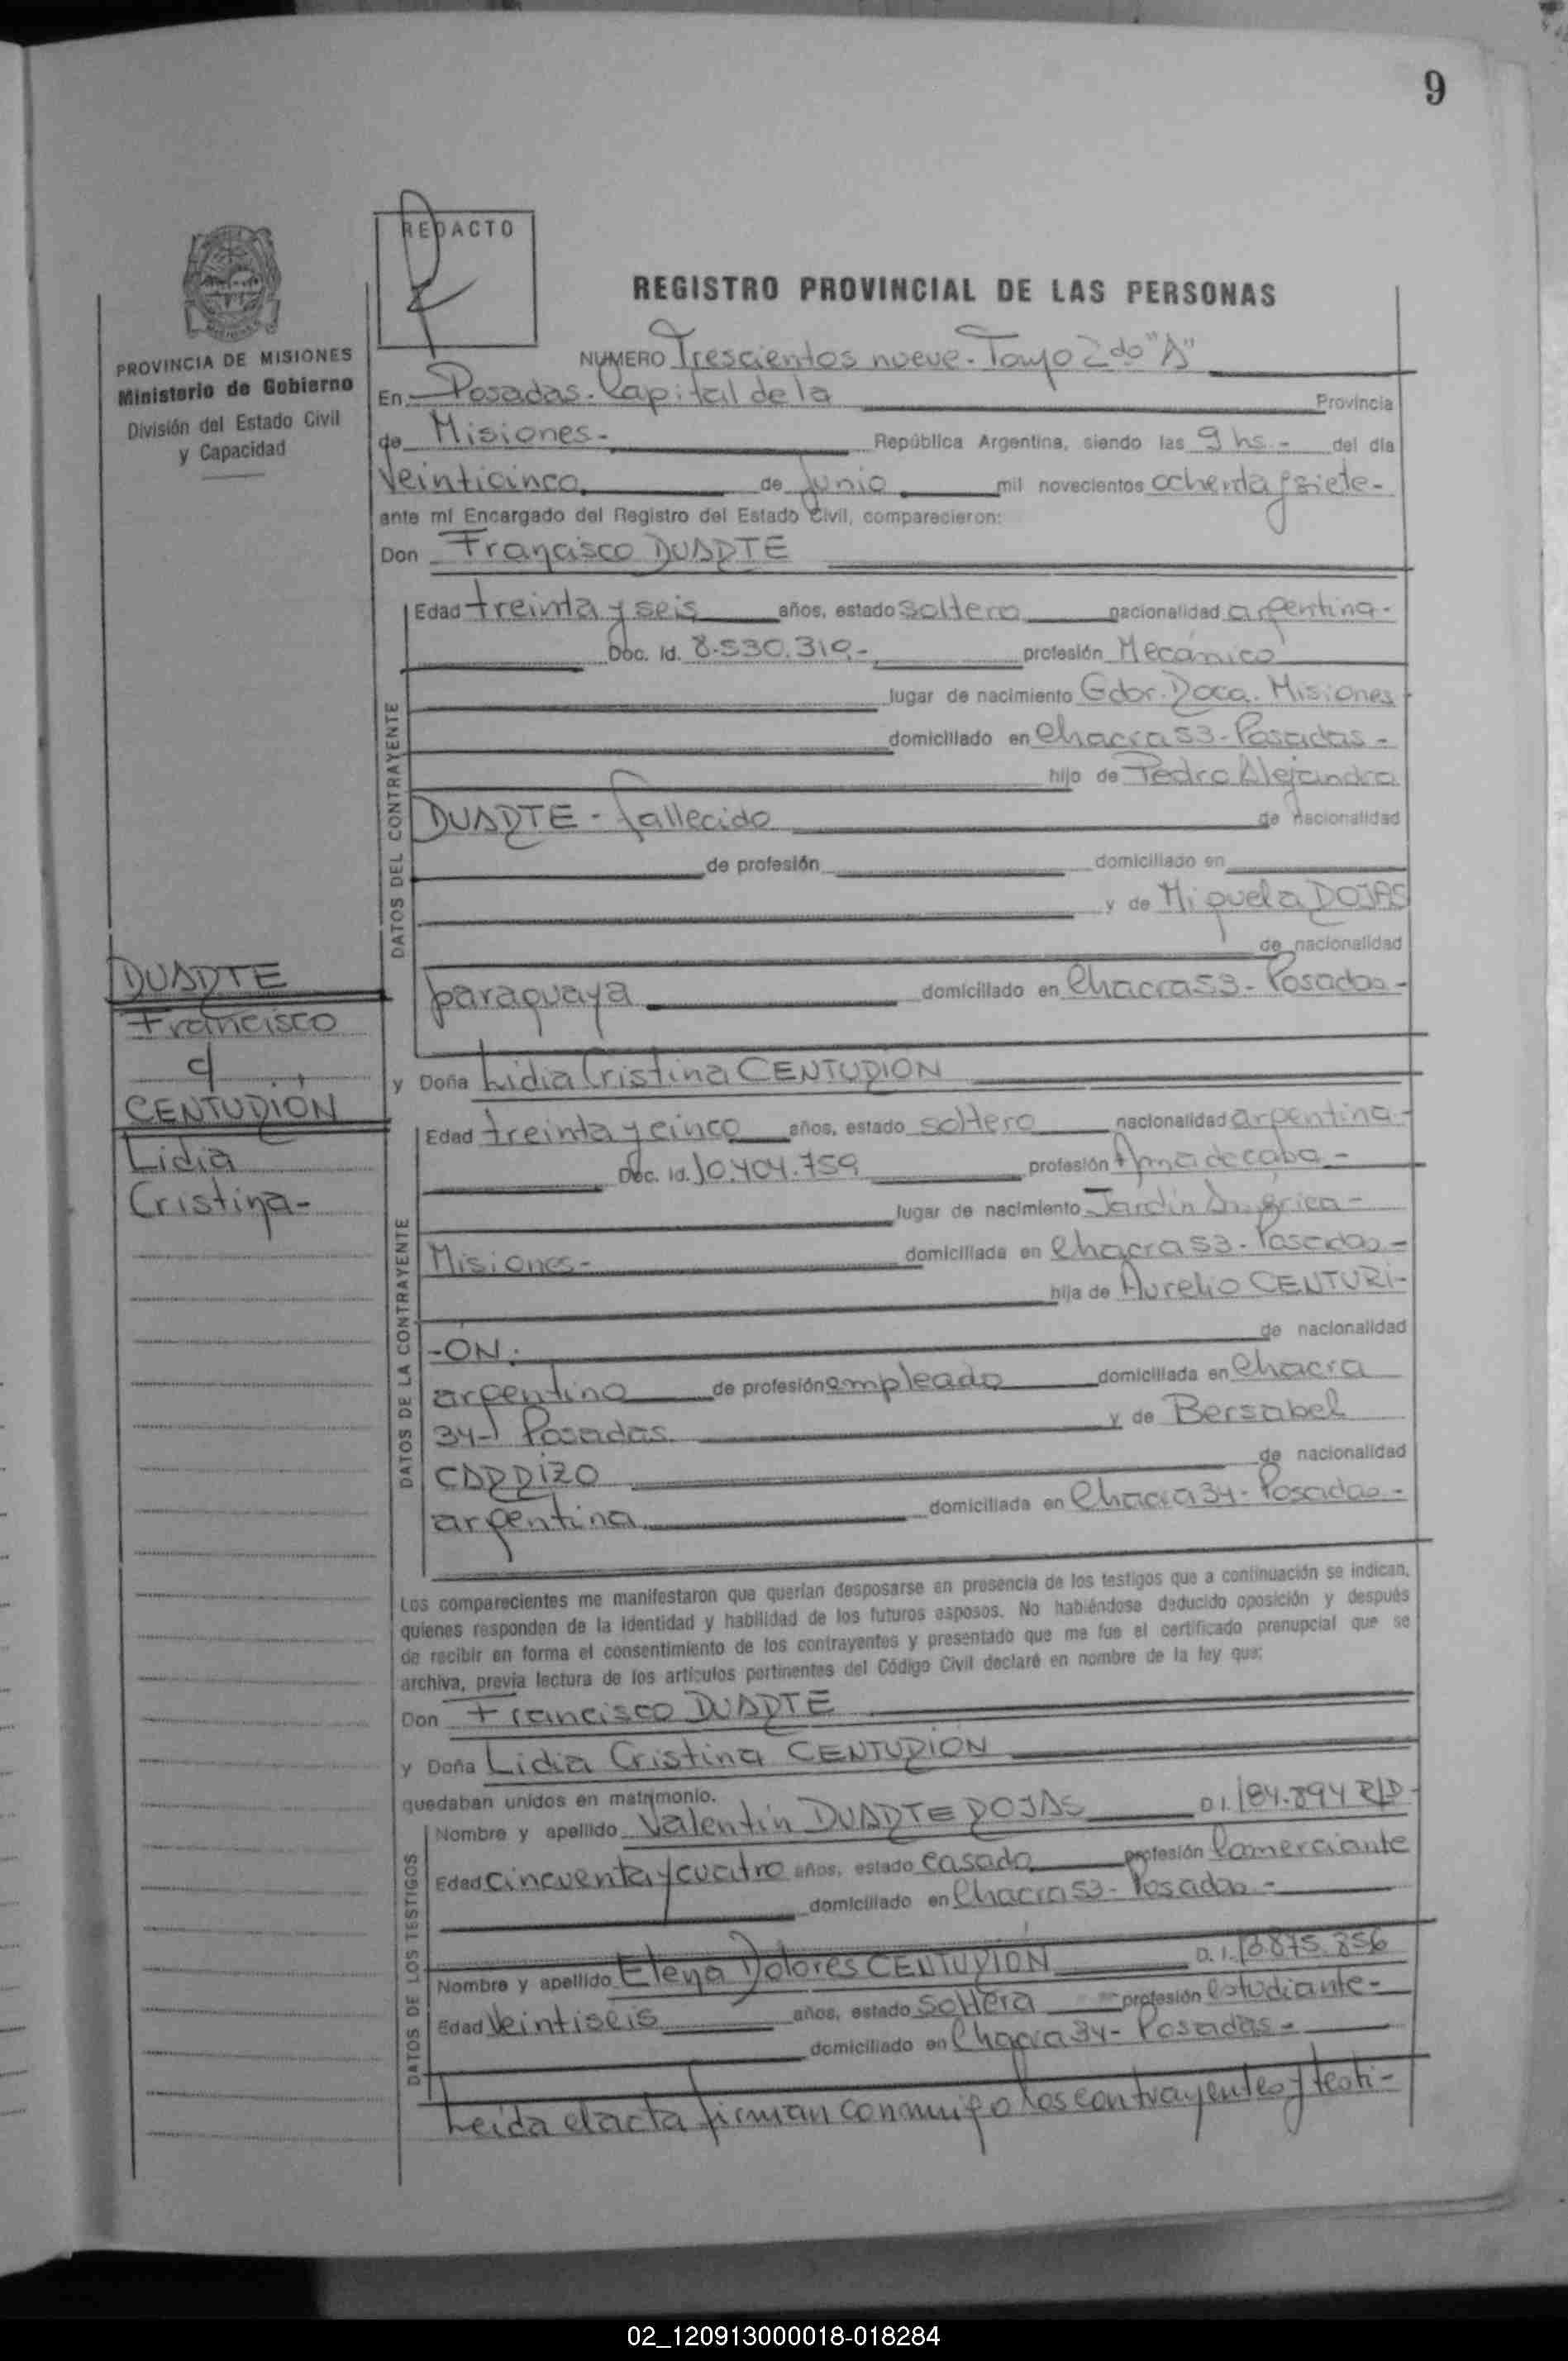 9
REDACTO
PROVINCIA DE MISIONES
Ministerio de Gobierno
División del Estado Civil
y Capacidad
REGISTRO PROVINCIAL DE LAS PERSONAS
NUMERO Trescientos nueve - Tomo 2do "A"
En Posadas. Capital de la Provincia
de Misiones - República Argentina, siendo las 9 hs - del día
Veinticinco de Junio mil novecientos ochenta y siete -
ante mí Encargado del Registro del Estado Civil, comparecieron:
Don Francisco DUARTE
DATOS DEL CONTRAYENTE
Edad treinta y seis años, estado soltero nacionalidad argentina -
Doc. Id. 8.530.319.- profesión Mecánico
lugar de nacimiento Gdor. Roca. Misiones
domiciliado en Chacra 53 - Posadas -
hijo de Pedro Alejandro
DUARTE - fallecido de nacionalidad
de profesión domiciliado en
y de Miguela ROJAS
de nacionalidad
paraguaya domiciliado en Chacra 53 - Posadas -
DUARTE
Francisco
c/
CENTURIÓN
Lidia
Cristina -
y Doña Lidia Cristina CENTURION
DATOS DE LA CONTRAYENTE
Edad treinta y cinco años, estado soltero nacionalidad argentina -
Doc. Id. 10.404.759 profesión Ama de casa -
lugar de nacimiento Jardín América -
Misiones - domiciliada en Chacra 53 - Posadas -
hija de Aurelio CENTURI-
-ÓN. de nacionalidad
argentino de profesión empleado domiciliada en Chacra
34 - Posadas. y de Bersabel
CARRIZO de nacionalidad
argentina domiciliada en Chacra 34 - Posadas -
Los comparecientes me manifestaron que querían desposarse en presencia de los testigos que a continuación se indican,
quienes responden de la identidad y habilidad de los futuros esposos. No habiéndose deducido oposición y después
de recibir en forma el consentimiento de los contrayentes y presentado que me fue el certificado prenupcial que se
archiva, previa lectura de los artículos pertinentes del Código Civil declaré en nombre de la ley que:
Don Francisco DUARTE
y Doña Lidia Cristina CENTURION
quedaban unidos en matrimonio.
DATOS DE LOS TESTIGOS
Nombre y apellido Valentín DUARTE ROJAS D.I. 184.894 R/P -
Edad cincuenta y cuatro años, estado casado profesión Comerciante
domiciliado en Chacra 53 - Posadas -
Nombre y apellido Elena Dolores CENTURION D.I. 13.875.856
Edad Veintiseis años, estado soltera profesión estudiante -
domiciliado en Chacra 34 - Posadas -
Leída el acta firman conmigo los contrayentes y testi-
02_120913000018-018284